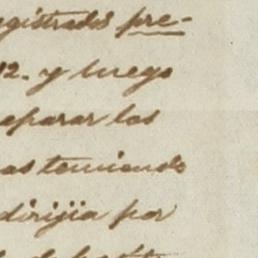 egistrados pre-
12. y luego
eparar los
as teniendo
dirijia por